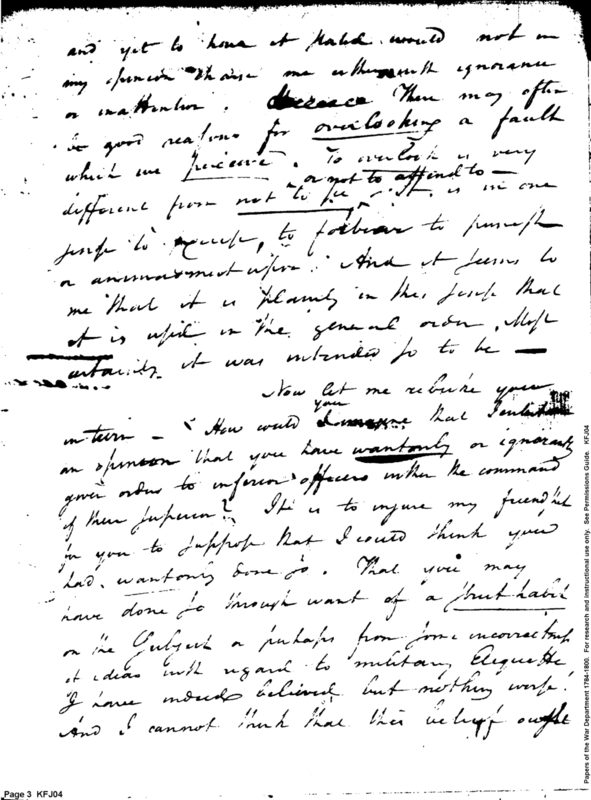 and yet to have it stated would not in
my opinion charge me either with ignorance
or inattention. There may often
be good reasons for overlooking a fault
which we perceive. To overlook is very
or not to attend to —
different from not to see. It is in one
sense to excuse, to forbear to punish
or animadvert upon. And it seems to
me that it is plainly in this sense that
it is used in the general order. Most
certainly it was intended so to be —
Now let me rebuke you
you
in turn — How could imagine that I entertained
an opinion that you have wantonly or ignorantly
given orders to inferior officers within the command
of their superior? It is to injure my friendship
for you to suppose that I could think you
had wantonly done so. That you may
have done so through want of a strict habit
on the Subject or perhaps from some incorrectness
of ideas with regard to military Etiquette
I have indeed believed but nothing worse.
And I cannot think that this belief ought
Page 3 KFJ04
Papers of the War Department 1784-1800. For research and instructional use only. See Permissions Guide. KFJ04